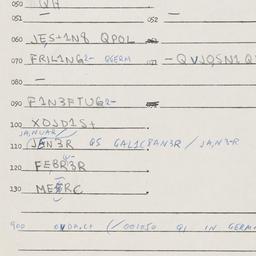 050 QH
051 — 052 —
060 JES+1N8 QPOL
070 FRIL1NG2- QGERM 071 -QVJQSN1Q
080 —
090 F1N3FTUG2-
100 XOJD1S+
JANUAR/
110 JAN3R QS GAL1C8AN3R / JAN3-R
120 FEBR3R
130 MERC
900 (/001050 Q1 IN GERM